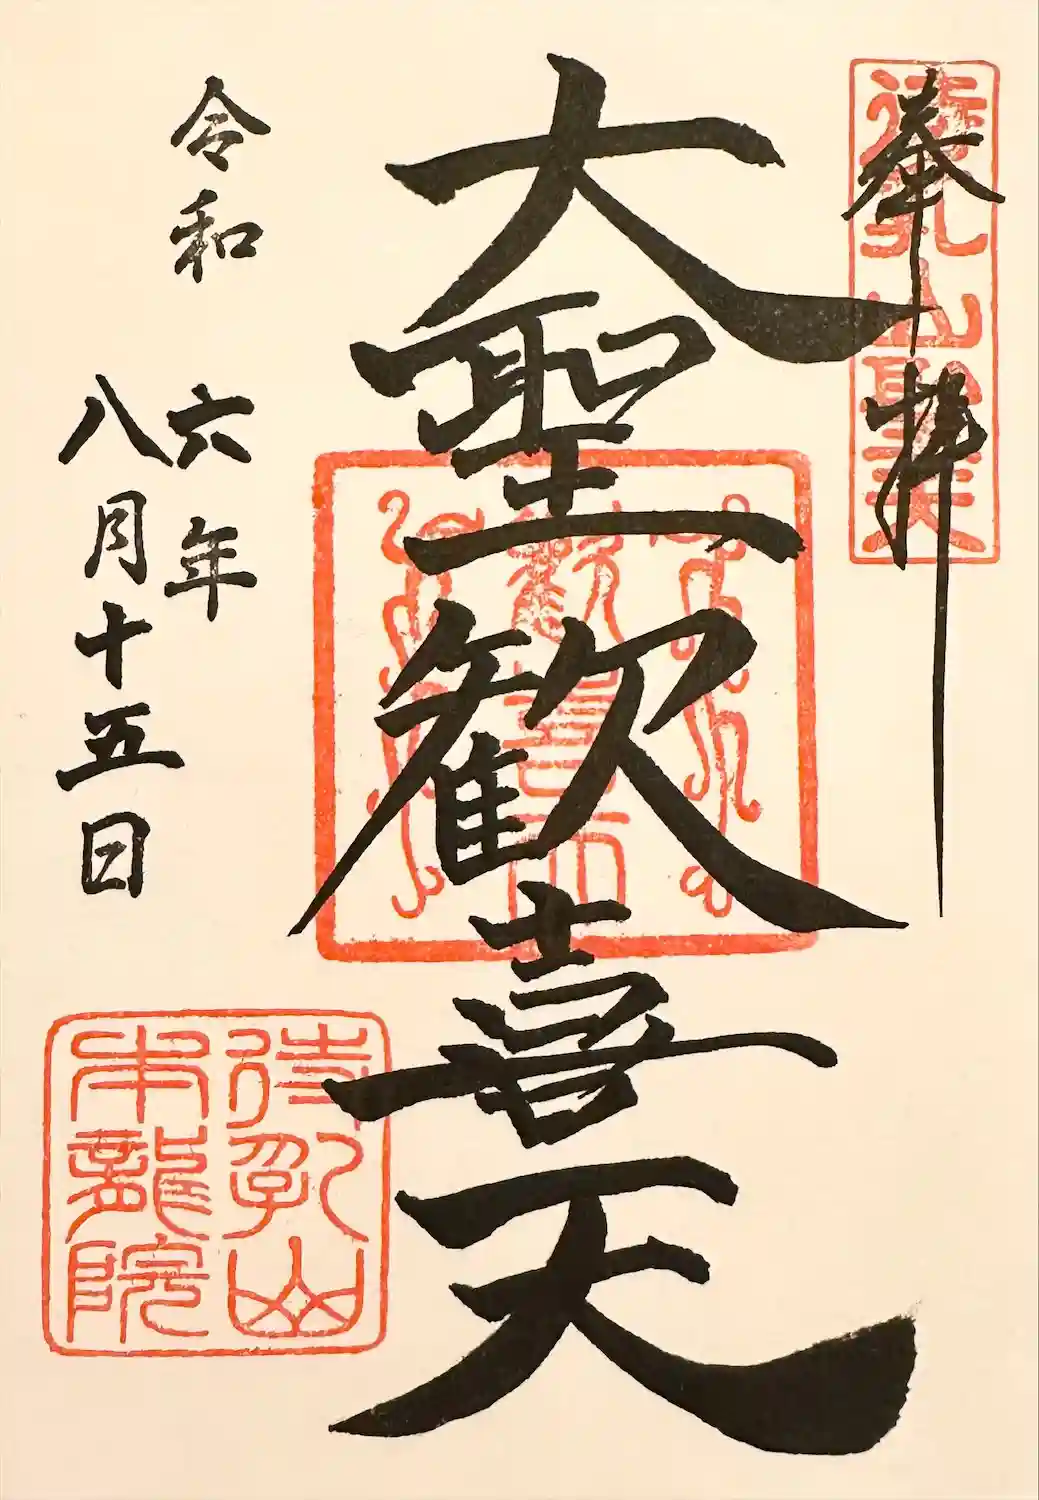 奉拝
待乳山聖天
大聖歓喜天
歓喜天
令和
六年
八月十五日
待乳山
本龍院